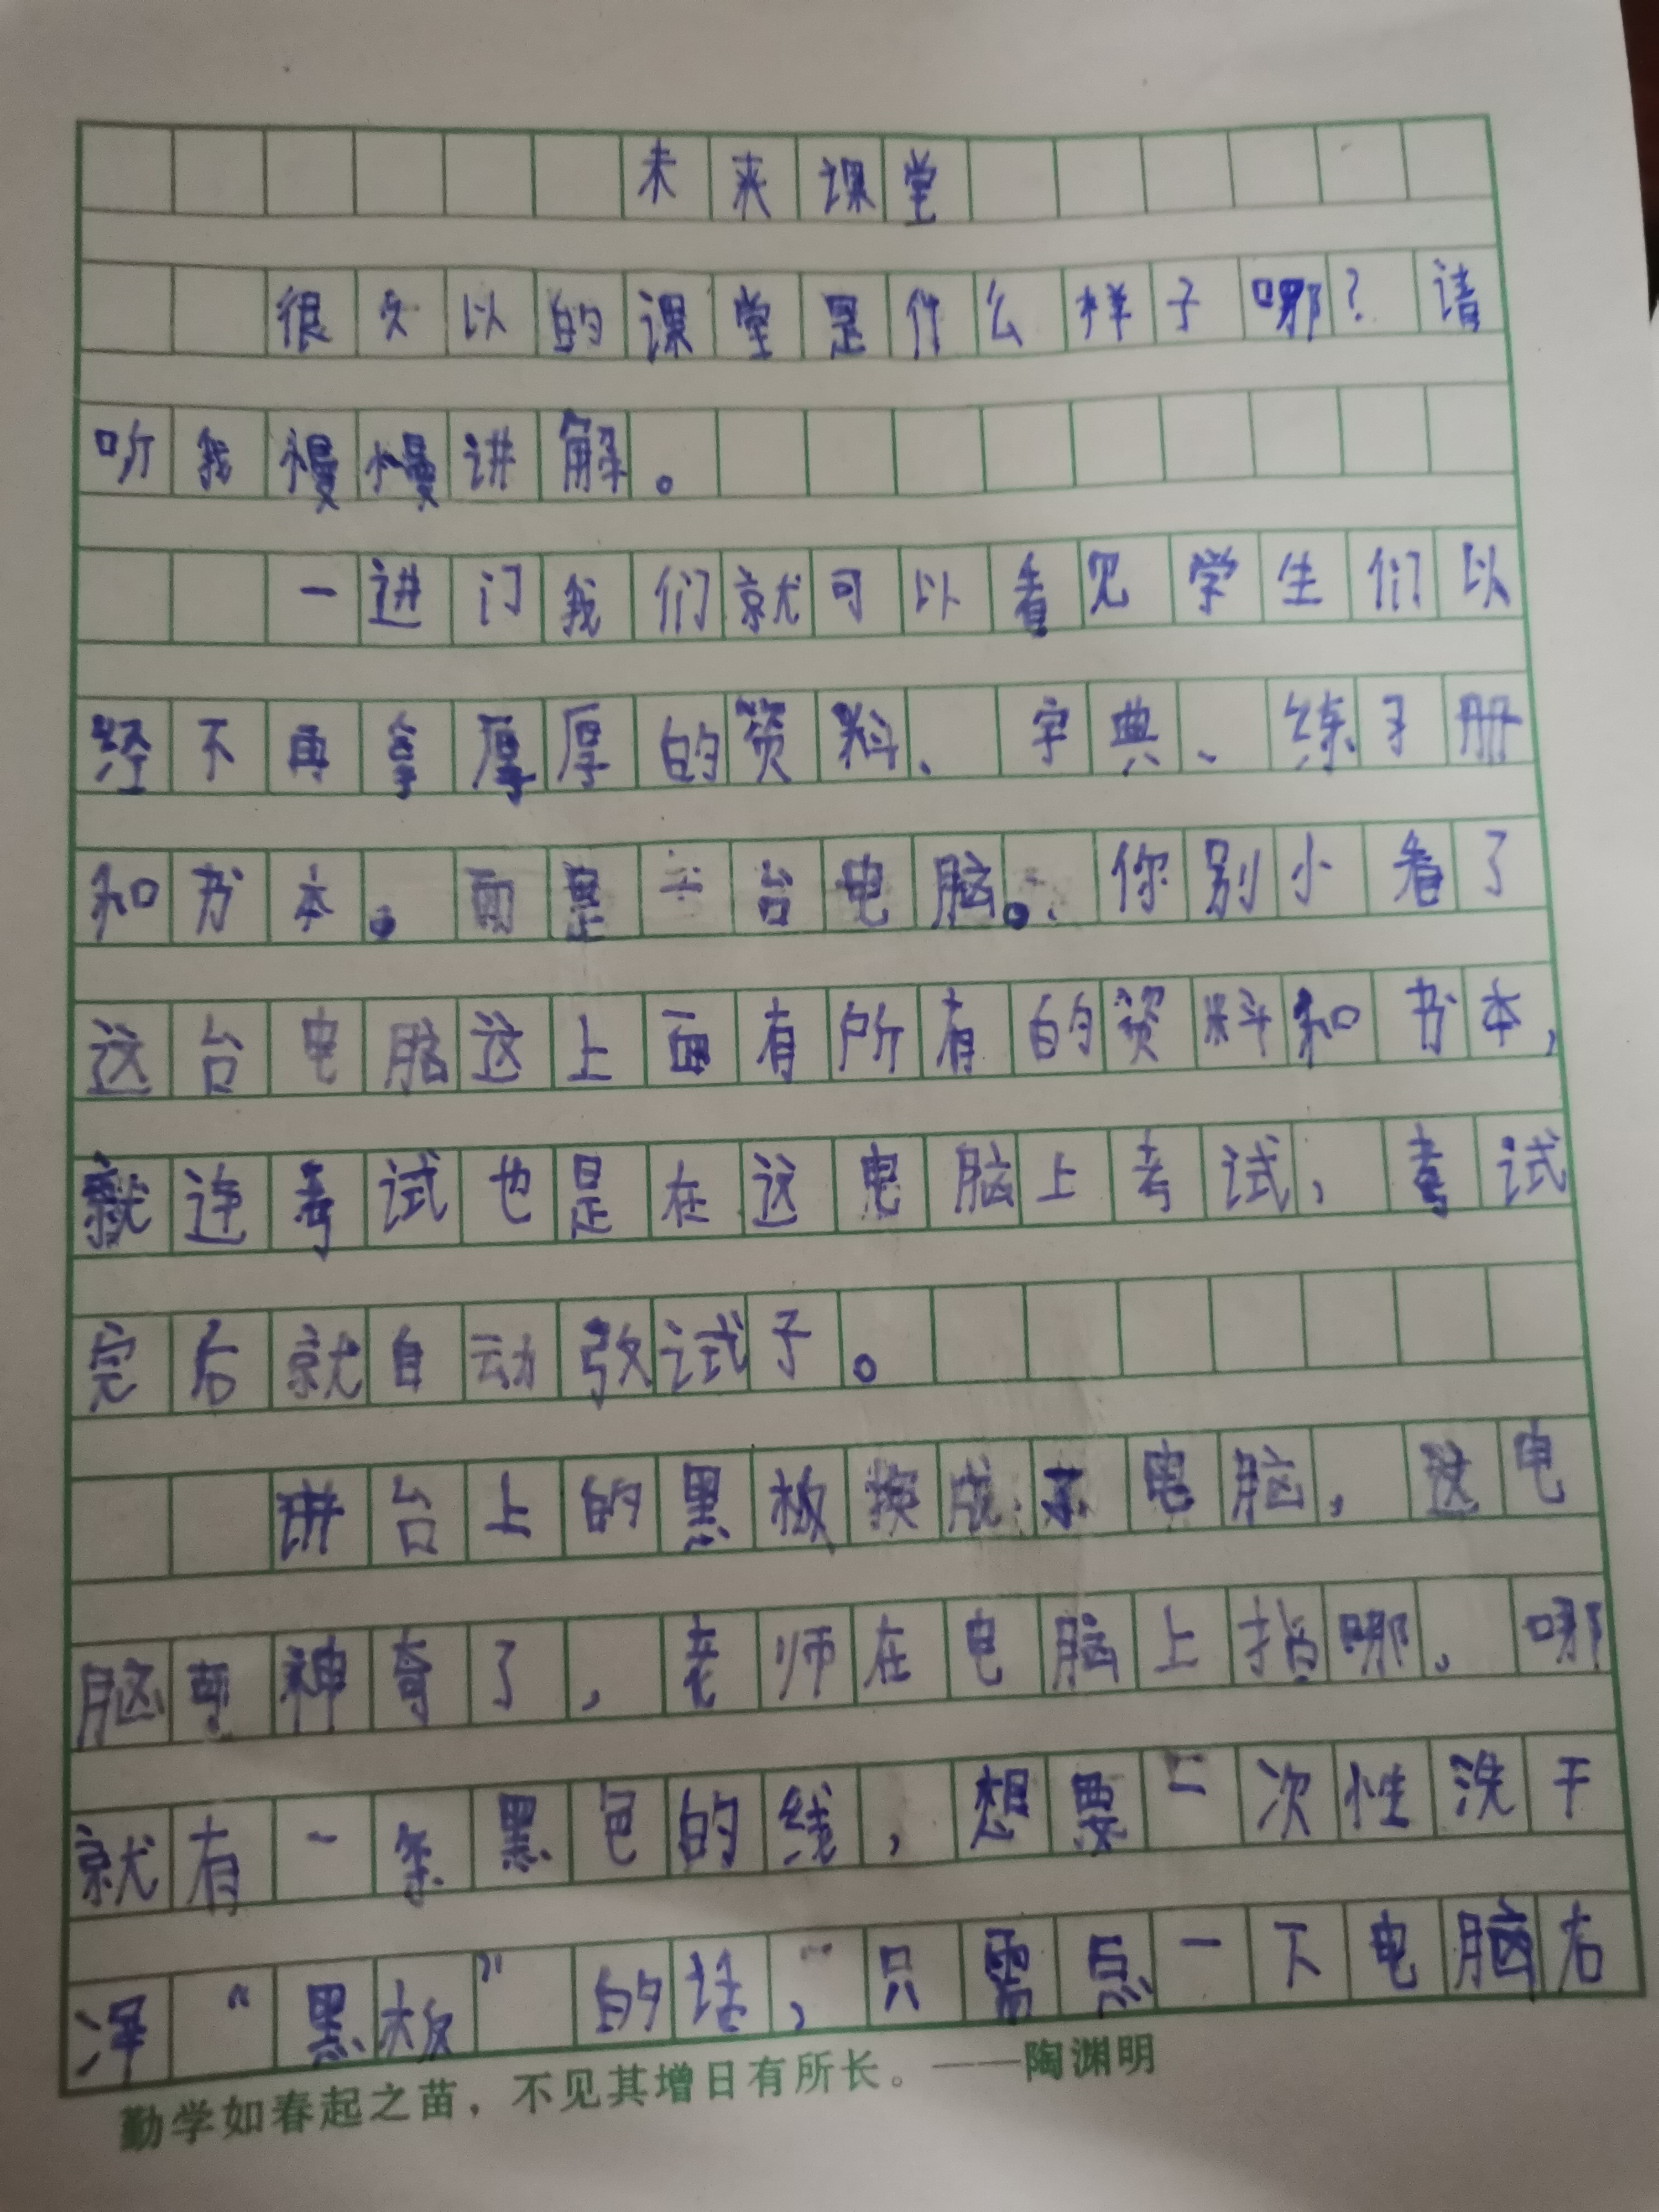 未来课堂
很久以的课堂是什么样子哪？请
听我慢慢讲解。
一进门我们就可以看见学生们以
经不再拿厚厚的资料、字典、练习册
和书本。而是一台电脑。你别小看了
这台电脑这上面有所有的资料和书本，
就连考试也是在这电脑上考试，考试
完后就自动改试子。
讲台上的黑板换成了电脑，这电
脑更神奇了，老师在电脑上指哪，哪
就有一条黑色的线，想要一次性洗干
净“黑板”的话，只需点一下电脑右
勤学如春起之苗，不见其增日有所长。——陶渊明